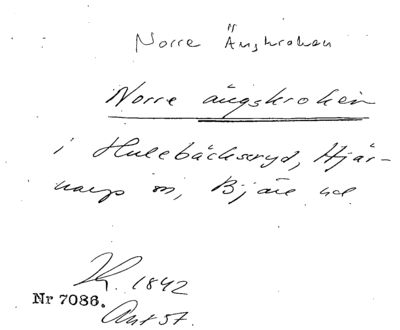 Norre Ängskroken
Norre ängskroken
i Hulebäcksryd, Hjär-
narps sn, Bjäre hd
1842
Nr 7086.
Ant 57.